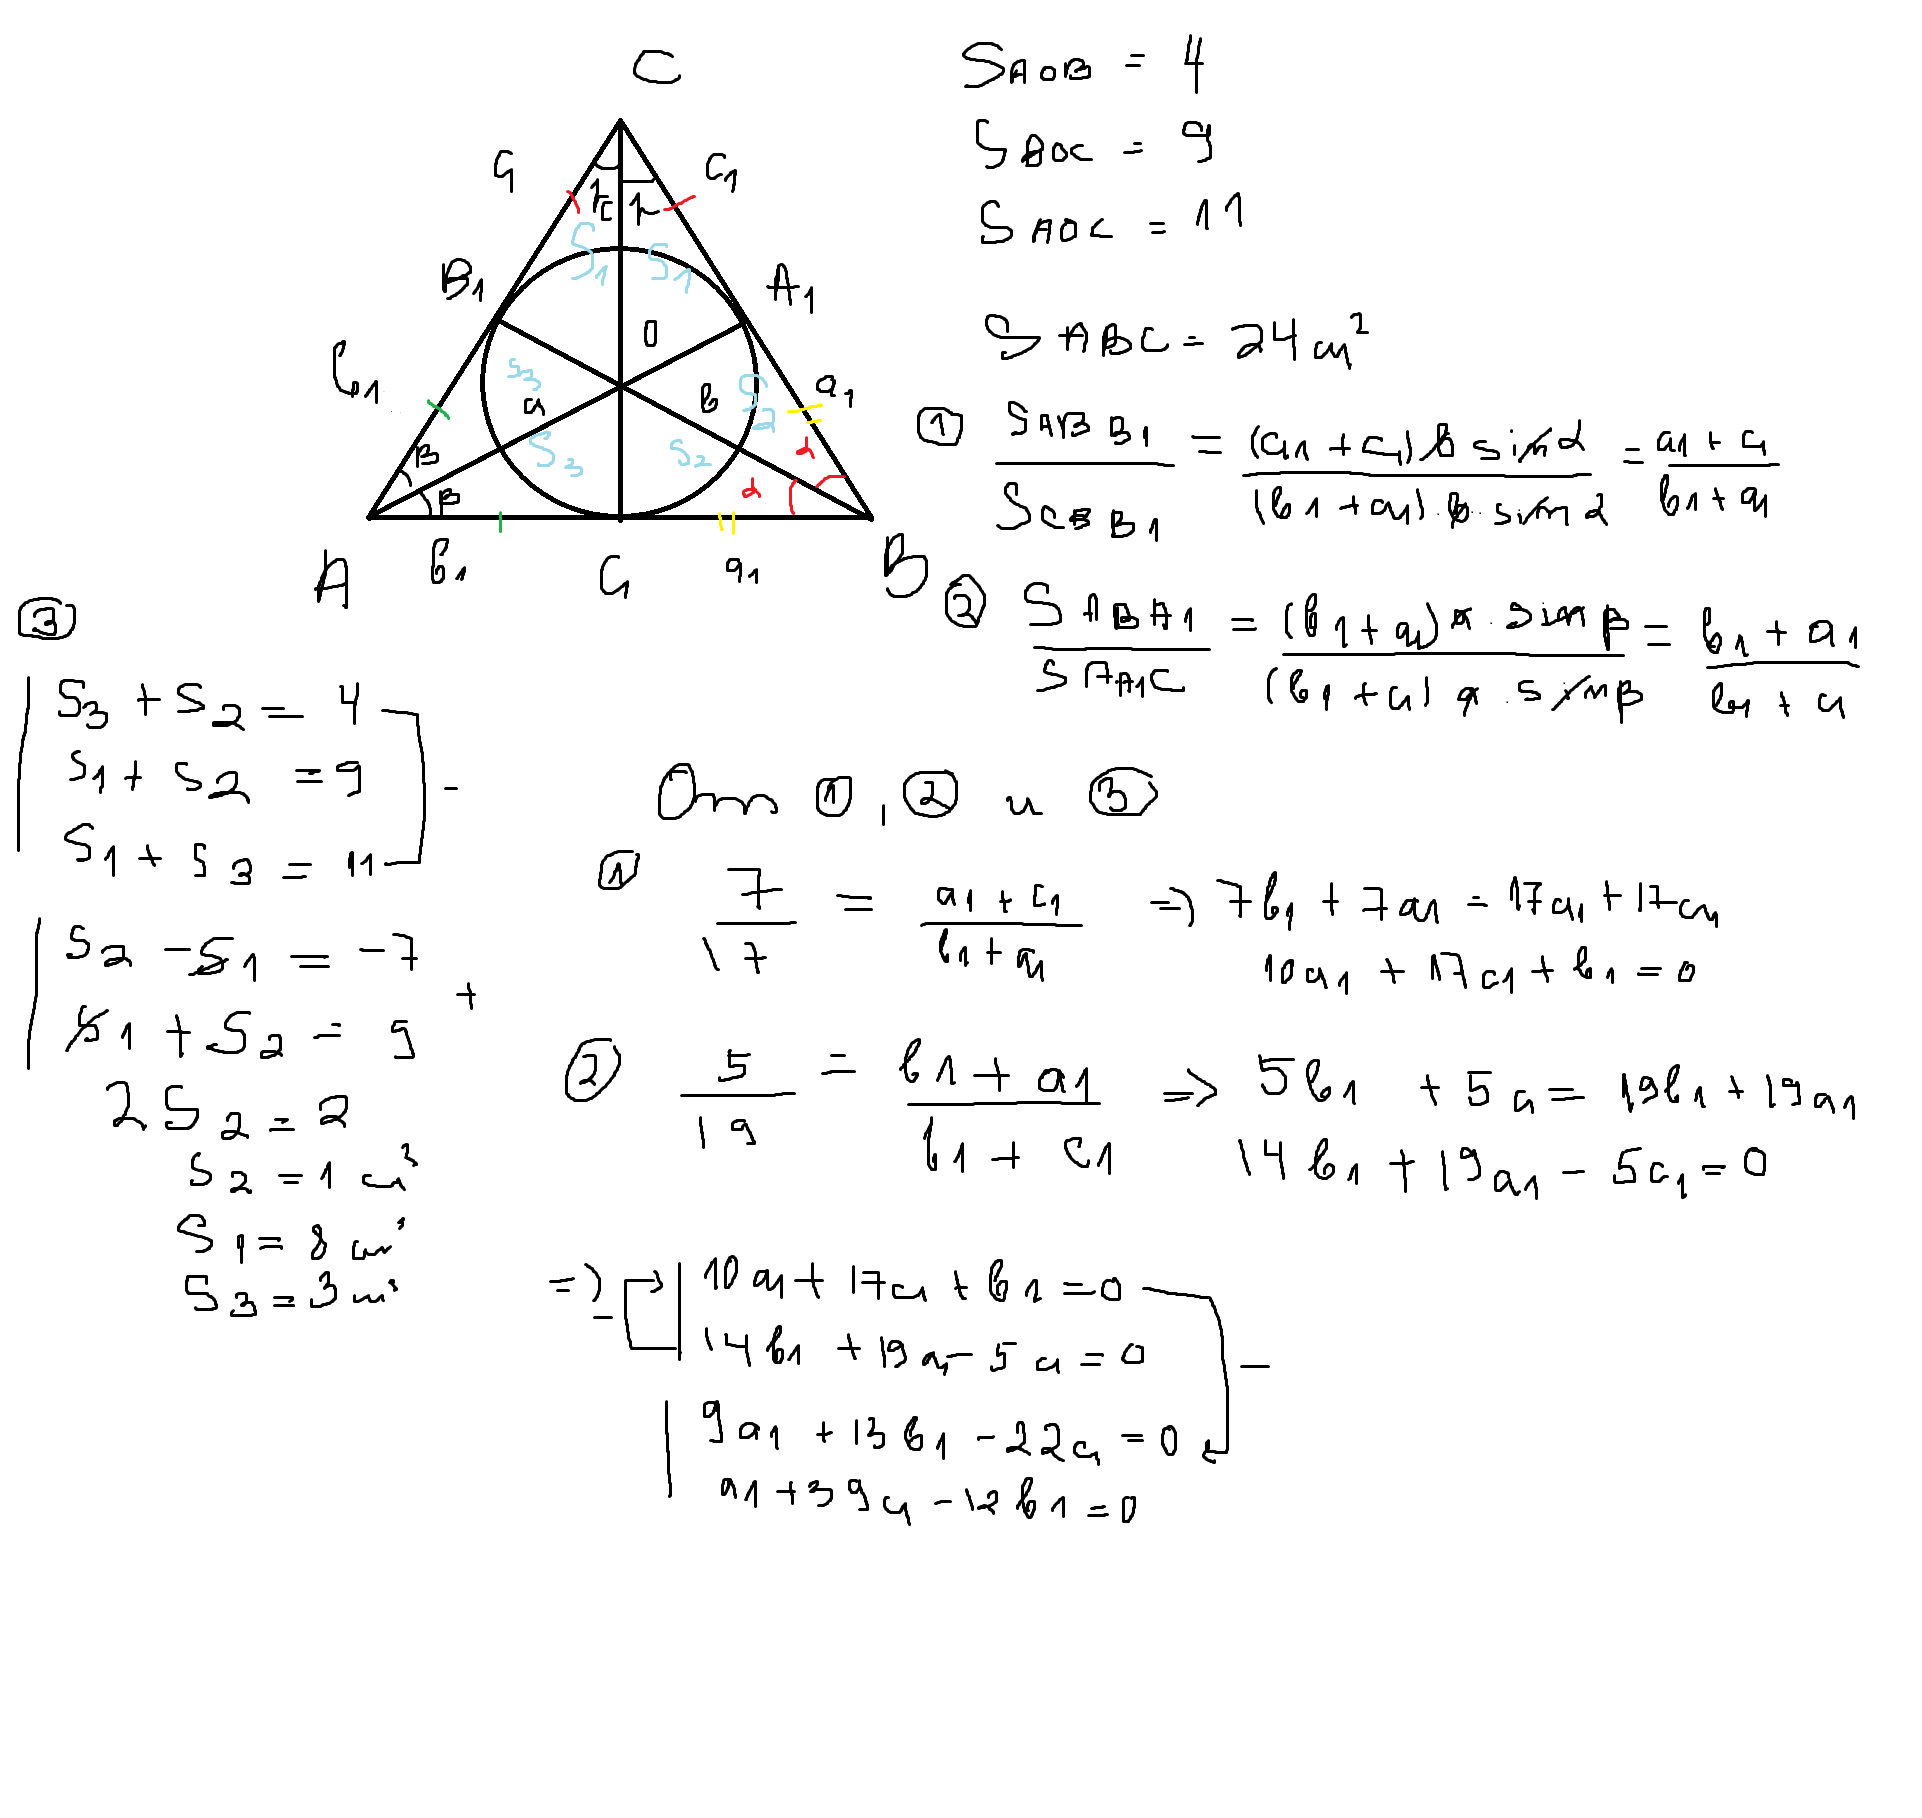 C
C₁ C₁
γ γ
c
S₁ S₁
B₁ A₁
O
b₁ a₁
S₃ a b S₂
S₃ S₂
β β α α
A b₁ C₁ a₁ B
S AOB = 4
S BOC = 9
S AOC = 11
S ABC = 24 cm²
① S ABB₁ / S CBB₁ = (a₁ + c₁) b sin α / (b₁ + a₁) . b . sin α = a₁ + c₁ / b₁ + a₁
② S ABA₁ / S AA₁C = (b₁ + a₁) a . sin β / (b₁ + c₁) a . sin β = b₁ + a₁ / b₁ + c₁
③
S₃ + S₂ = 4
S₁ + S₂ = 9 -
S₁ + S₃ = 11
S₂ - S₁ = -7
S₁ + S₂ = 9 +
2S₂ = 2
S₂ = 1 cm³
S₁ = 8 cm³
S₃ = 3 cm³
От ①, ② и ③
① 7/17 = a₁ + c₁ / b₁ + a₁ => 7b₁ + 7a₁ = 17a₁ + 17c₁
10a₁ + 17c₁ + b₁ = 0
② 5/19 = b₁ + a₁ / b₁ + c₁ => 5b₁ + 5c₁ = 19b₁ + 19a₁
14b₁ + 19a₁ - 5c₁ = 0
=> - 10a₁ + 17c₁ + b₁ = 0
14b₁ + 19a₁ - 5c₁ = 0 -
9a₁ + 13b₁ - 22c₁ = 0
a₁ + 39c₁ - 12b₁ = 0